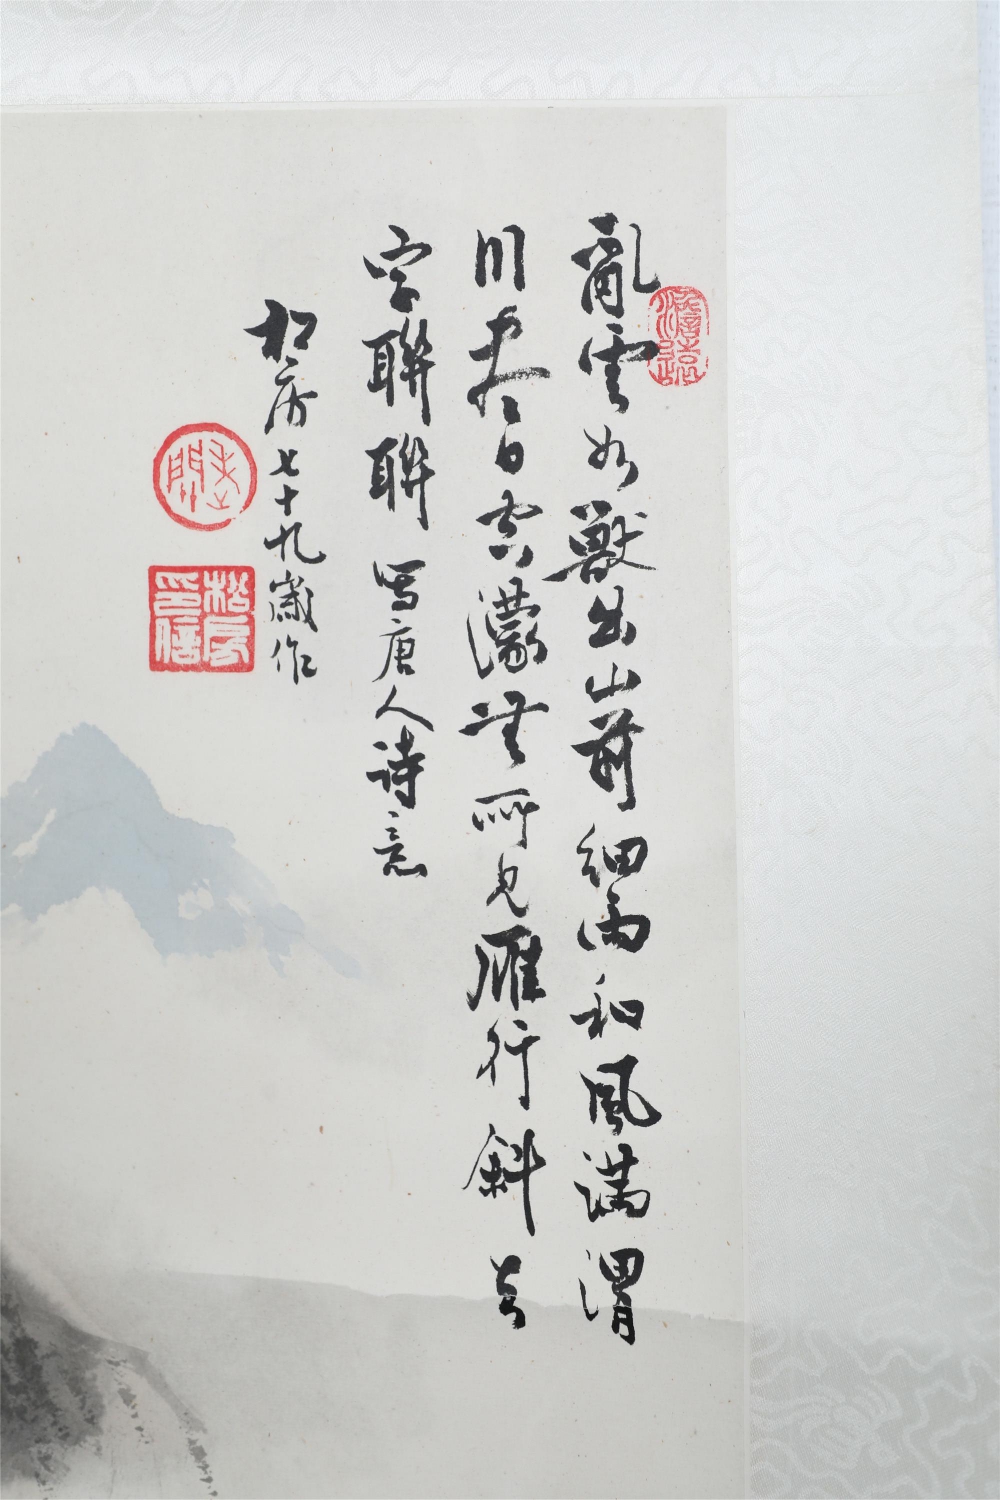 亂雲如獸出山前細雨和風滿渭
川盡日空濛無所見雁行斜去
字聯聯 寫唐人詩意
松房七十九歲作
澹遠
松房印信